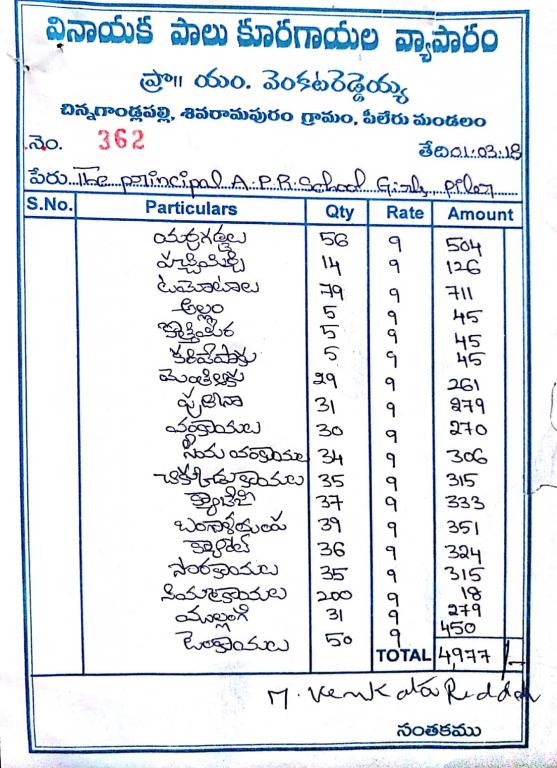 వినాయక పాలు కూరగాయల వ్యాపారం
ప్రొ॥ యం. వెంకటరెడ్డెయ్య
చిన్నగాండ్లపల్లి, శివరామపురం గ్రామం, పీలేరు మండలం
నెం. 362 తేది 01.03.18
పేరు The principal A.P.R. School Girls, piler
S.No. Particulars Qty Rate Amount
56 9 504
పచ్చిమిర్చి 14 9 126
టమోటాలు 79 9 711
అల్లం 5 9 45
కొత్తిమీర 5 9 45
కరివేపాకు 5 9 45
29 9 261
పుదీనా 31 9 279
వంకాయలు 30 9 270
సీమ వంకాయలు 34 9 306
చిక్కుడుకాయలు 35 9 315
క్యాబేజి 37 9 333
39 9 351
క్యారెట్ 36 9 324
సొరకాయలు 35 9 315
200 9 18
ముల్లంగి 31 9 279
50 9 450
TOTAL 4,977/-
M. Venkata Reddeh
సంతకము